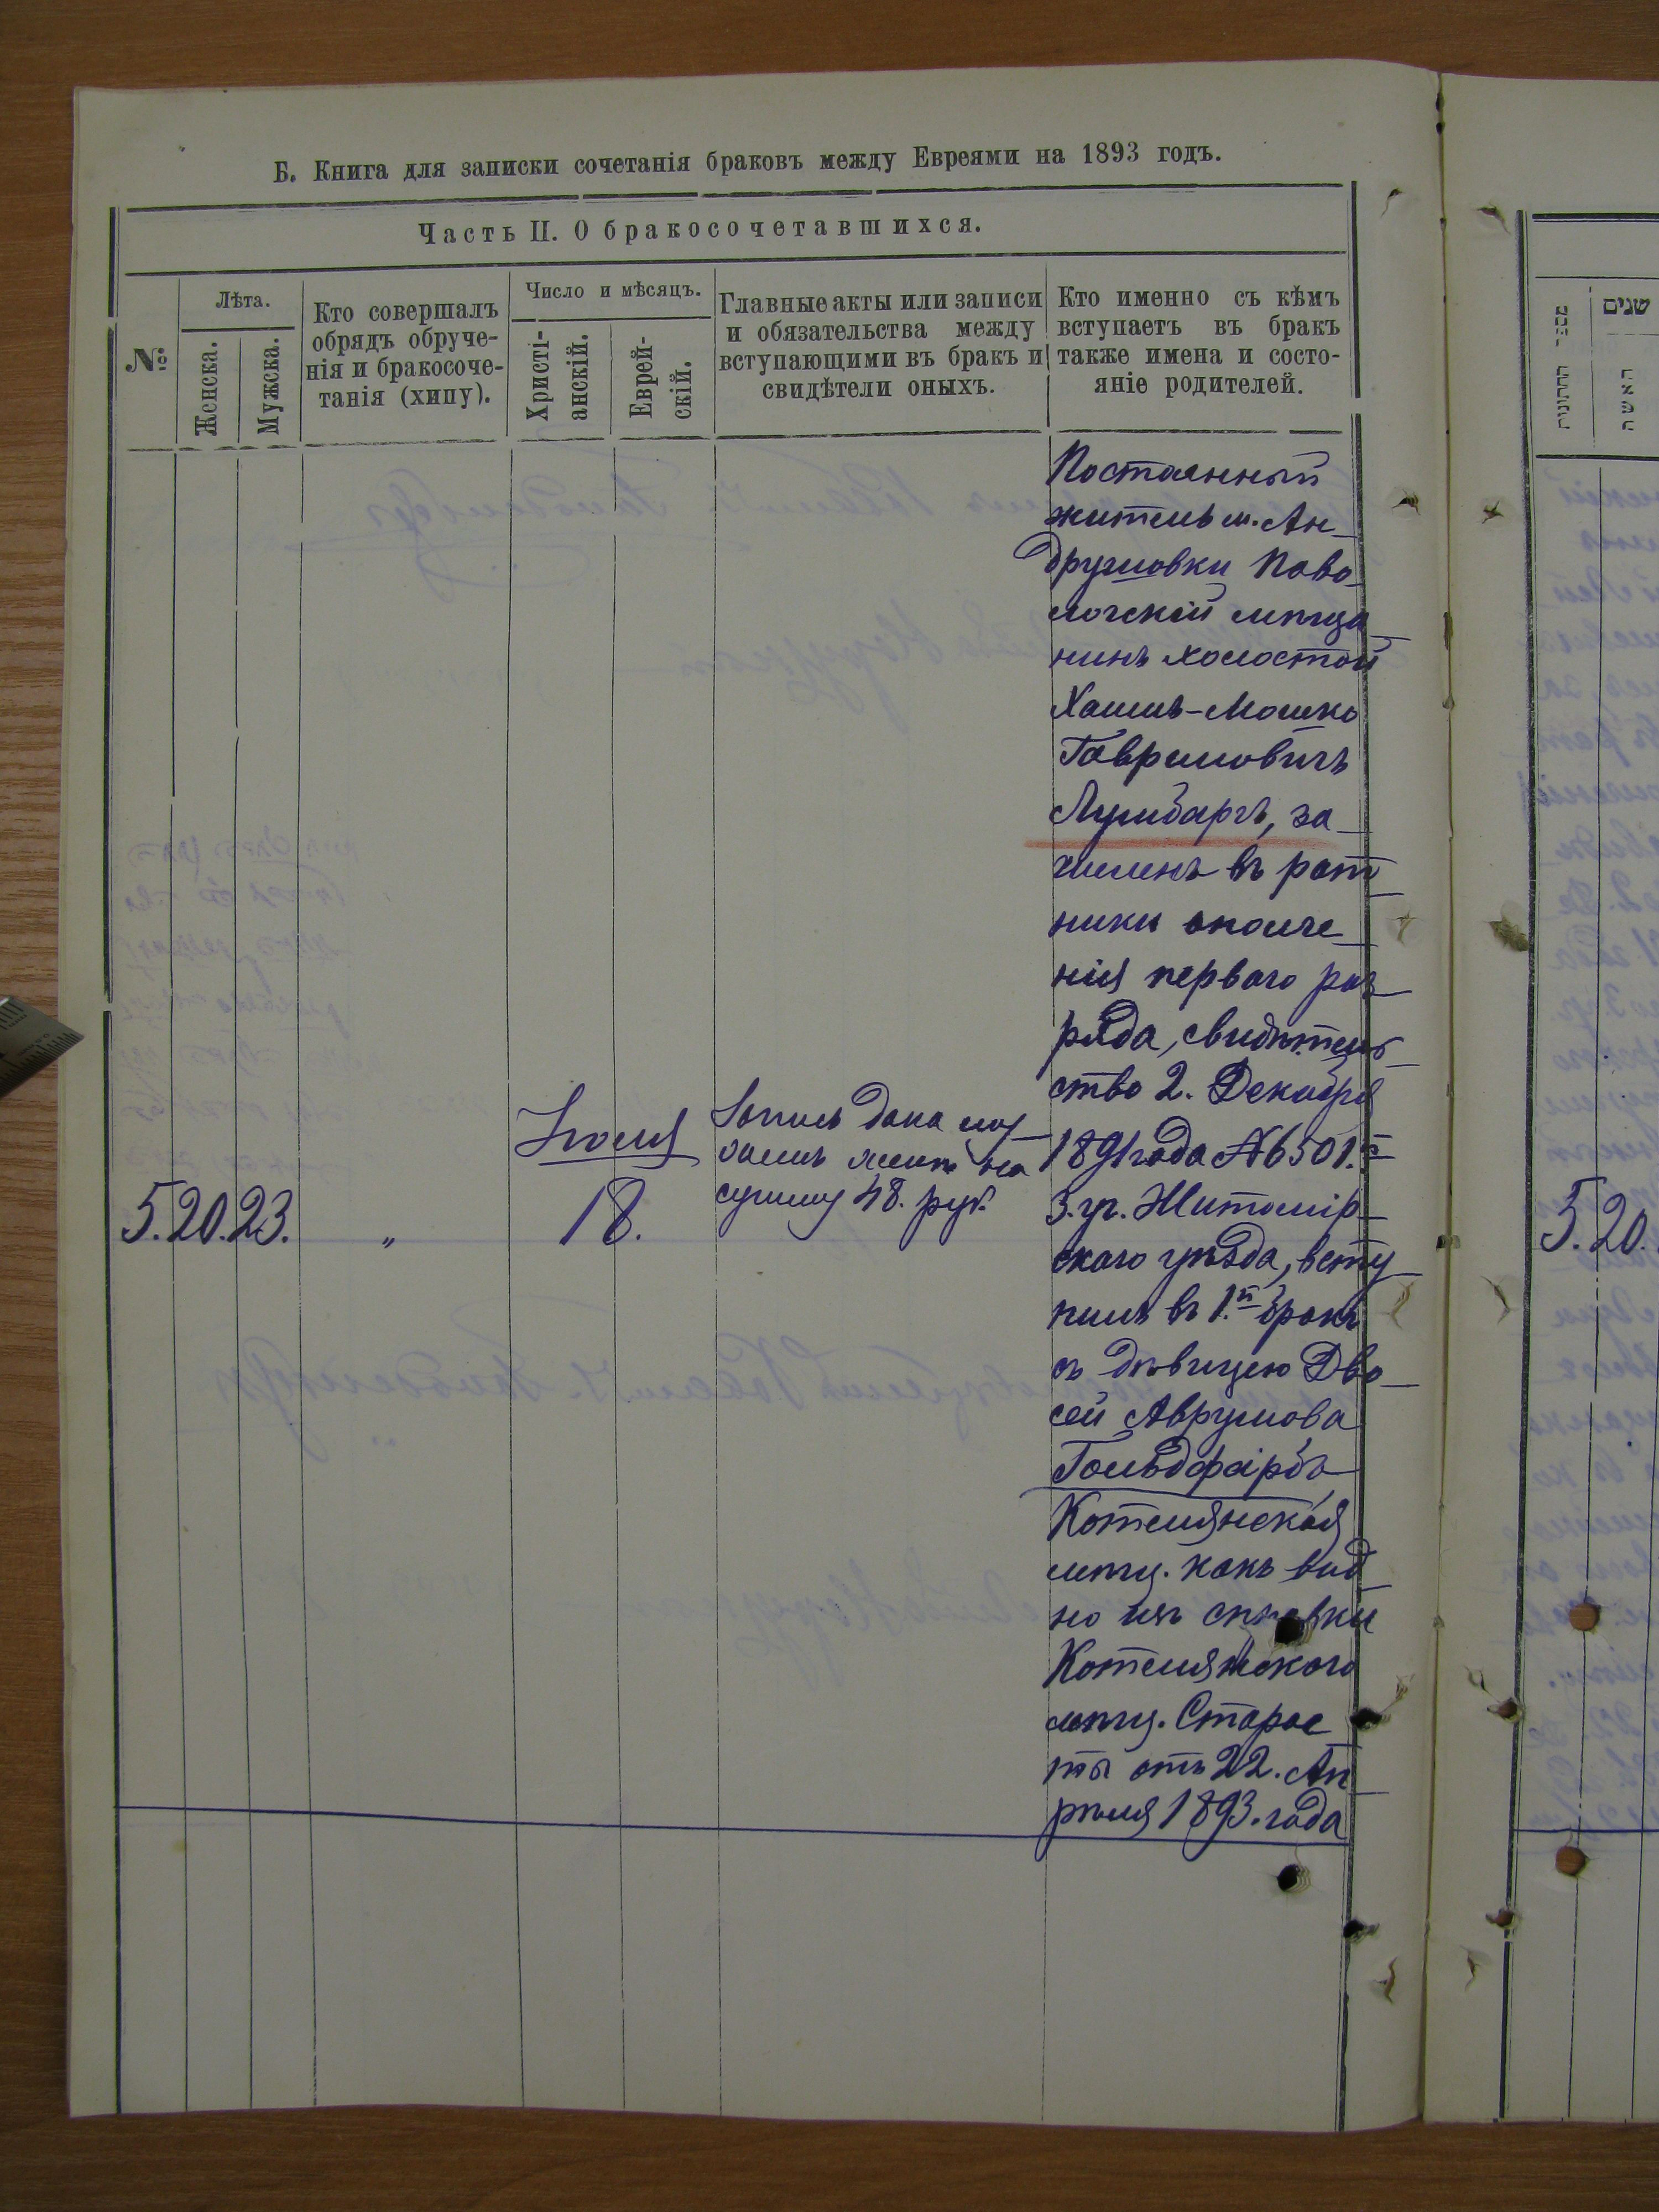 Б. Книга для записки сочетанія браковъ между Евреями на 1893 годъ.
Часть II. О бракосочетавшихся.
№
Лѣта.
Женска.
Мужска.
Кто совершалъ
обрядъ обруче-
нія и бракосоче-
танія (хипу).
Число и мѣсяцъ.
Христі-
анскій.
Еврей-
скій.
Главные акты или записи
и обязательства между
вступающими въ бракъ и
свидѣтели оныхъ.
Кто именно съ кѣмъ
вступаетъ въ бракъ
также имена и состо-
яніе родителей.
5. 20. 23. „
Іюля
18.
Запись дана му
жемъ женѣ на
сумму 48. руб.
Постоянный
житель м. Ан
друшовки Паво
лочскій мѣща
нинъ холостой
Хаимъ-Мошко
Гавриловичъ
за
численъ въ рат
ники ополче
нія перваго раз
ряда, свидѣтель
ство 2. Декабря
1891 года №6501.
3. уч. Житомір
скаго уѣзда, всту
пилъ въ 1.й бракъ
съ дѣвицею Дво
сей Аврумова
Гольдфарбъ
Котелянская
мѣщ. какъ вид
но изъ справки
Котелянскаго
мѣщ. Старос
ты отъ 22. Ап
рѣля 1893. года
שנים
האשה
5. 20.